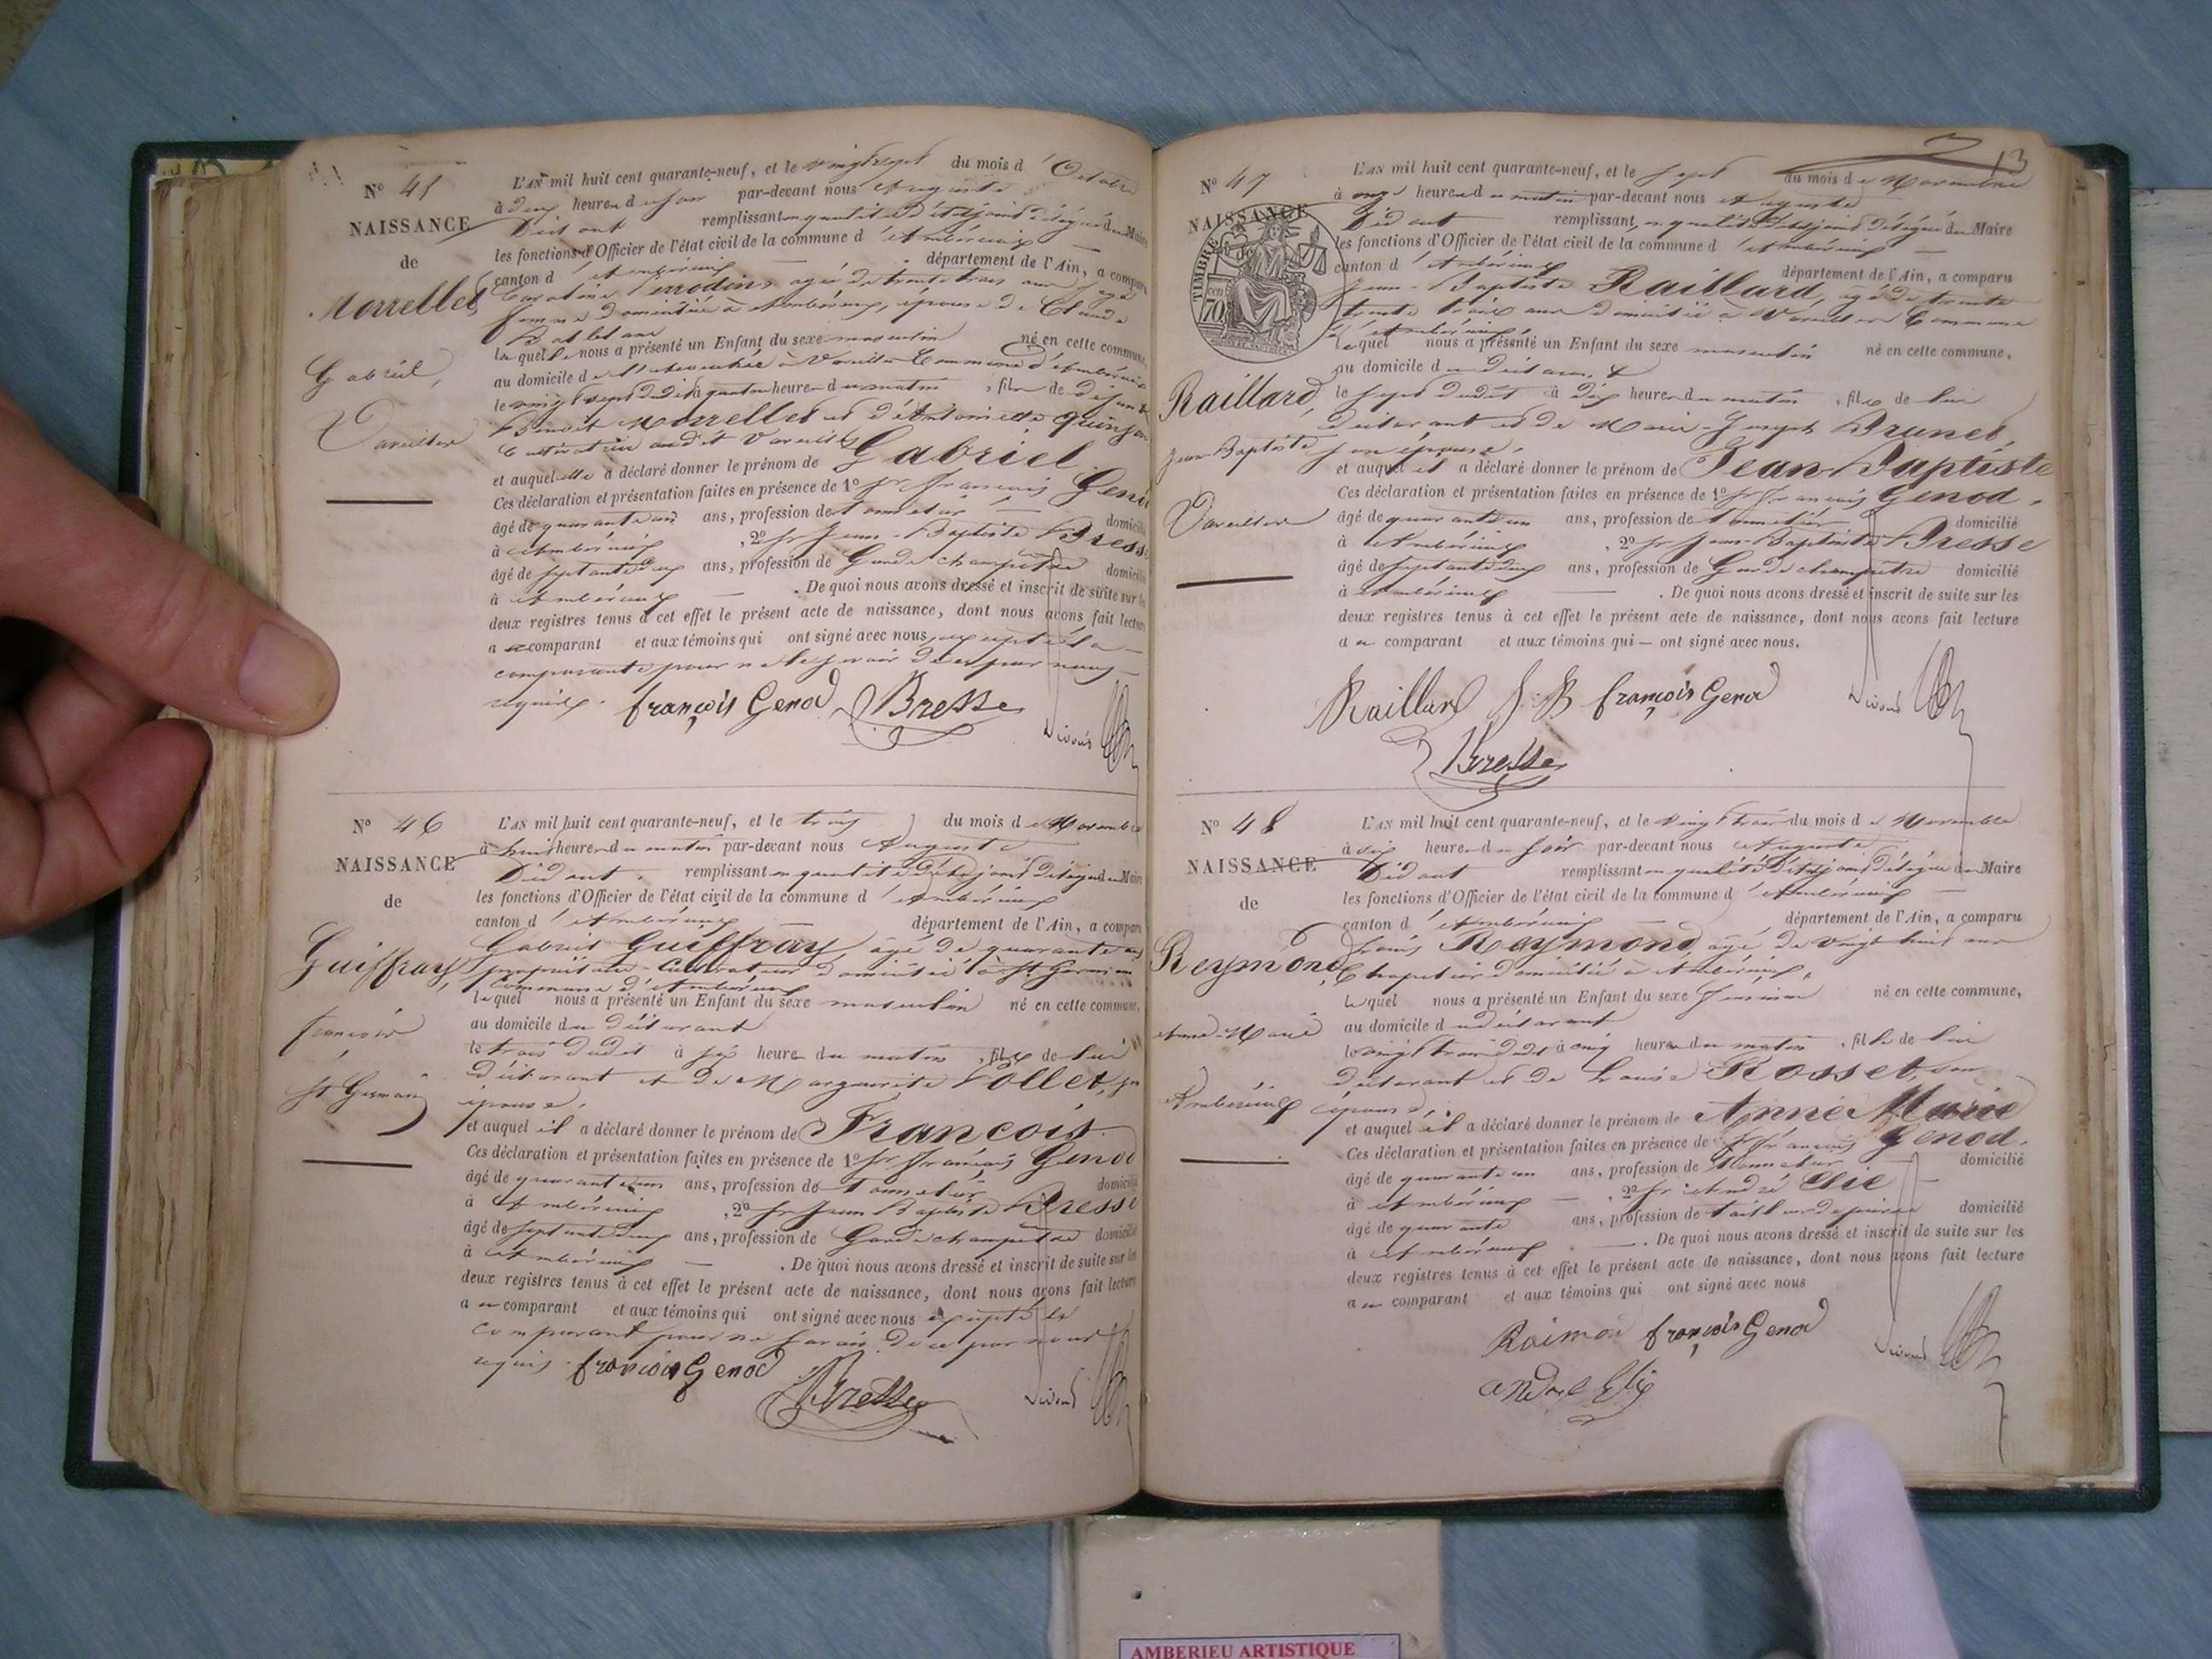 N° 45
NAISSANCE
de
Morrellet
Gabriel,
Vareilles
L'AN mil huit cent quarante-neuf, et le vingt sept du mois d'Octobre
à deux heures du soir par-devant nous Auguste
Didout remplissant en qualité d'adjoint délégué du Maire
les fonctions d'Officier de l'état civil de la commune d'Ambérieux
canton d'Ambérieux département de l'Ain, a comparu
Caroline Perrodin, agée de trente trois ans, sage
femme domiciliée à Ambérieux, épouse de Claude
laquelle nous a présenté un Enfant du sexe masculin né en cette commune
au domicile de l'accouchée à Vareilles Commune d'Ambérieux
le vingt sept dudit à quatre heures du matin, fils de défunt
Benoit Morrellet et d'Antoinette Quinson
Cultivatrice audit Vareilles
et auquel elle a déclaré donner le prénom de Gabriel
Ces déclaration et présentation faites en présence de 1° sr françois Genod
âgé de quarante un ans, profession de tonnelier domicilié
à Ambérieux, 2° sr Jean-Baptiste Bresse
âgé de septante deux ans, profession de Garde champêtre domicilié
à Ambérieux. De quoi nous avons dressé et inscrit de suite sur les
deux registres tenus à cet effet le présent acte de naissance, dont nous avons fait lecture
a la comparant et aux témoins qui ont signé avec nous, excepté la
comparante pour ne le savoir de ce par nous
requise. françois Genod Bresse Didout
N° 46
NAISSANCE
de
Guiffray,
françois
St Germain
L'AN mil huit cent quarante-neuf, et le trois du mois de Novembre
à huit heures du matin par-devant nous Auguste
Didout. remplissant en qualité d'adjoint délégué du Maire
les fonctions d'Officier de l'état civil de la commune d'Ambérieux
canton d'Ambérieux département de l'Ain, a comparu
Gabriel Guiffray, âgé de quarante ans
propriétaire-Cultivateur domicilié à St Germain
Commune d'Ambérieux
lequel nous a présenté un Enfant du sexe masculin né en cette commune,
au domicile du déclarant
le trois dudit à six heures du matin, fils de lui
déclarant et de Marguerite Pollet, son
épouse,
et auquel il a déclaré donner le prénom de François
Ces déclaration et présentation faites en présence de 1° sr françois Genod
âgé de quarante un ans, profession de tonnelier domicilié
à Ambérieux, 2° sr Jean Baptiste Bresse
âgé de septante deux ans, profession de Garde champêtre domicilié
à Ambérieux. De quoi nous avons dressé et inscrit de suite sur les
deux registres tenus à cet effet le présent acte de naissance, dont nous avons fait lecture
a u comparant et aux témoins qui ont signé avec nous excepté le
comparant pour ne savoir de ce par nous
requis. françois Genod Bresse Didout
13
N° 47
NAISSANCE
de
TIMBRE
70
Raillard,
Jean-Baptiste
Vareilles
L'AN mil huit cent quarante-neuf, et le sept du mois de Novembre
à onze heures du matin par-devant nous Auguste
Didout remplissant en qualité d'adjoint délégué du Maire
les fonctions d'Officier de l'état civil de la commune d'Ambérieux
canton d'Ambérieux département de l'Ain, a comparu
Jean-Baptiste Raillard, agé de trente
trente trois ans domicilié à Vareilles Commune
d'Ambérieux
lequel nous a présenté un Enfant du sexe masculin né en cette commune,
au domicile du déclarant
le sept dudit à dix heures du matin, fils de lui
déclarant et de Marie-Joseph Brunet,
son épouse,
et auquel il a déclaré donner le prénom de Jean-Baptiste
Ces déclaration et présentation faites en présence de 1° sr françois Genod,
âgé de quarante un ans, profession de tonnelier domicilié
à Ambérieux, 2° sr Jean-Baptiste Bresse
âgé de septante deux ans, profession de Garde champêtre domicilié
à Ambérieux. De quoi nous avons dressé et inscrit de suite sur les
deux registres tenus à cet effet le présent acte de naissance, dont nous avons fait lecture
a u comparant et aux témoins qui — ont signé avec nous.
Raillard J. B françois Genod Didout
Bresse
N° 48
NAISSANCE
de
Reymond,
Anne-Marie
Ambérieux
L'AN mil huit cent quarante-neuf, et le vingt trois du mois de Novembre
à six heures du soir par-devant nous Auguste
Didout remplissant en qualité d'adjoint délégué du Maire
les fonctions d'Officier de l'état civil de la commune d'Ambérieux
canton d'Ambérieux département de l'Ain, a comparu
Louis Raymond, agé de vingt huit ans
Chapelier domicilié à Ambérieux,
lequel nous a présenté un Enfant du sexe féminin né en cette commune,
au domicile du déclarant
le vingt trois dudit à cinq heures du matin, fille de lui
déclarant et de Louise Rosset, son
épouse,
et auquel il a déclaré donner le prénom de Anne Marie
Ces déclaration et présentation faites en présence de 1° sr françois Genod,
âgé de quarante un ans, profession de tonnelier domicilié
à Ambérieux, 2° sr André Elie
âgé de quarante ans, profession de tailleur de pierre domicilié
à Ambérieux. De quoi nous avons dressé et inscrit de suite sur les
deux registres tenus à cet effet le présent acte de naissance, dont nous avons fait lecture
a u comparant et aux témoins qui ont signé avec nous
Raimon françois Genod Didout
andré Elie
AMBERIEU ARTISTIQUE